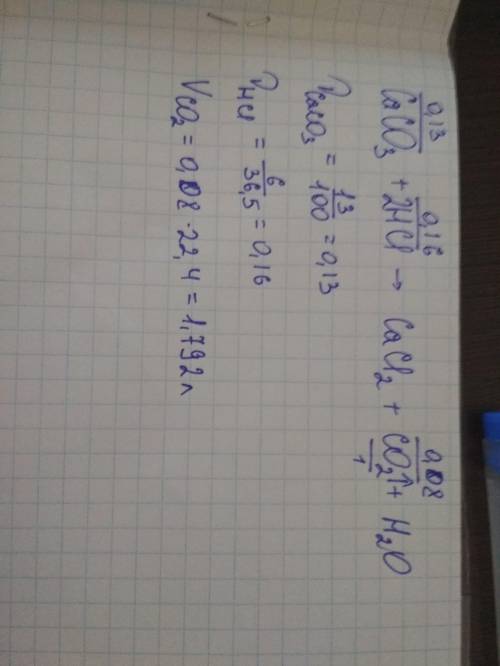 0,13 0,16 0,08
CaCO₃ + 2HCl → CaCl₂ + CO₂↑ + H₂O
1
nCaCO₃ = 13/100 = 0,13
nHCl = 6/36,5 = 0,16
VCO₂ = 0,08 · 22,4 = 1,792 л